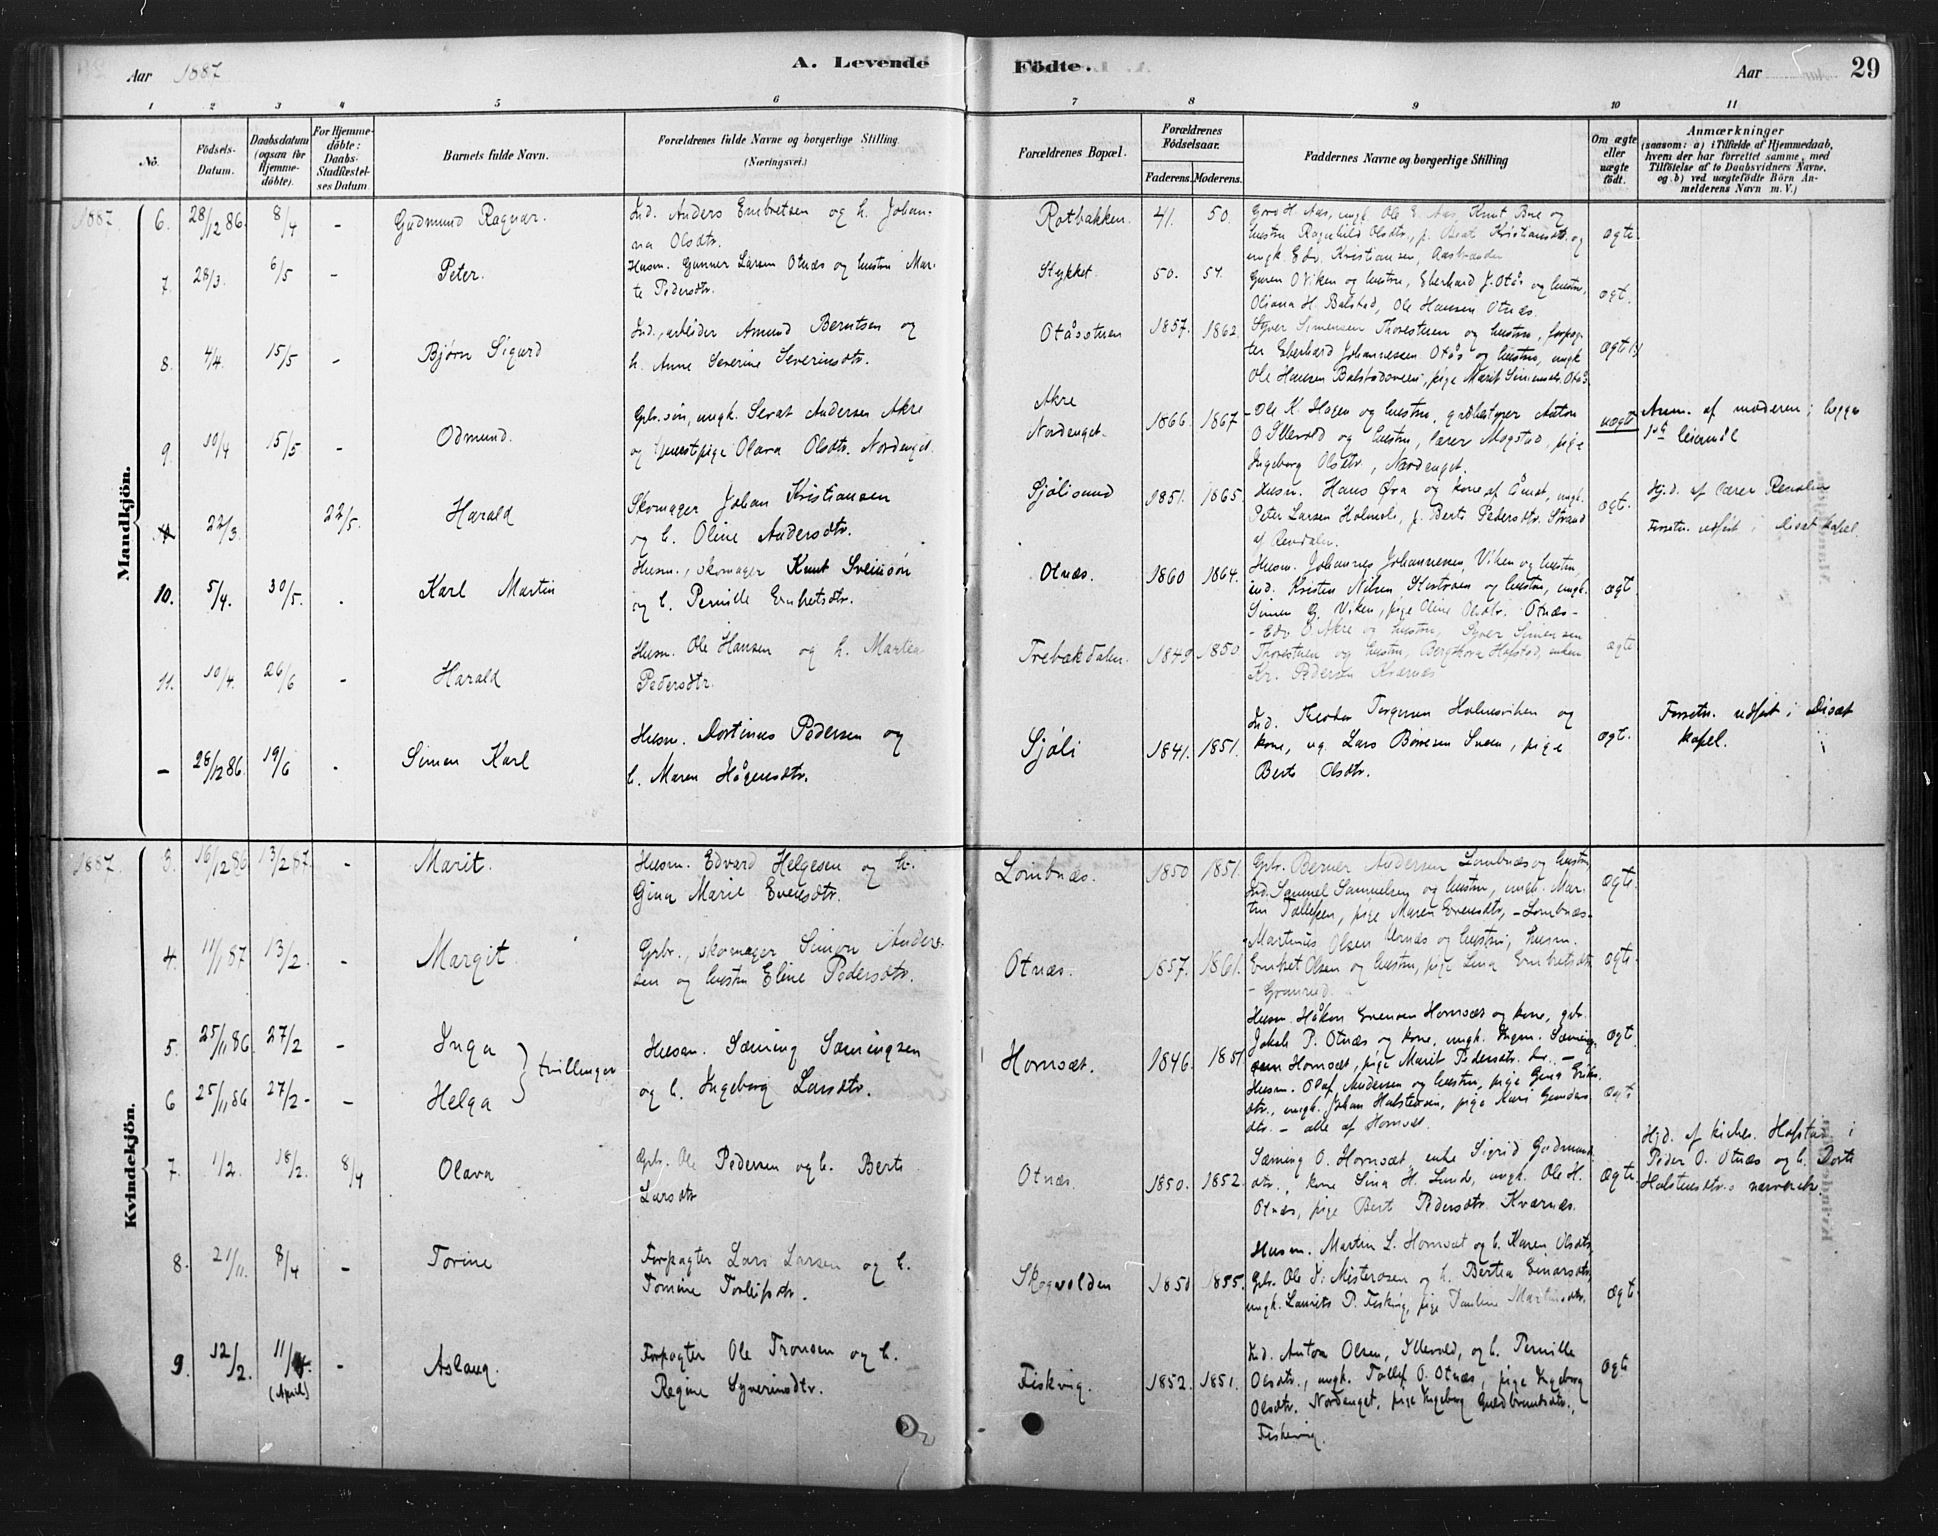 Aar 1887
A. Levende
Fødte.
Aar
29
1 2 3 4 5 6 7 8 9 10 11
No.
Fødsels-Datum.
Daabsdatum (ogsaa for Hjemmedöbte).
For Hjemmedöbte: Daabs-Stadfestelses Datum
Barnets fulde Navn.
Forældrenes fulde Navne og borgerlige Stilling (Næringsvei.)
Forældrenes Bopæl.
Forældrenes Födselsaar.
Faderens. Moderens.
Faddernes Navne og borgerlige Stilling
Om ægte eller uægte födt.
Anmærkninger (saasom: a) i Tilfælde af Hjemmedaab, hvem der har forrettet samme, med Tilföielse af to Daabsvidners Navne, og b) ved uægtefödte Börn Anmelderens Navn m. V.)
Mandkjön.
1887. 6. 28/12 86. 8/4 - Gudmund Ragnar. Ind. Anders Embretsen og h. Johan-
na Olsdtr. Rotbakken. 41. 50. ægte.
7. 28/3. 6/5 - Peter. Husm. Gunner Larsen Otnæs og hustru Mar-
te Pedersdtr. Stykket. 50. 54. ægt.
Oliana H. Balstad, Ole Hansen Otnæs.
8. 4/4. 15/5 - Bjørn Sigurd Ind., arbeider Amund Berntsen og
h. Anne Severine Severinsdtr. Otåsstuen 1857. 1862. Syver Simensen Thorestuen og hustru, forpag-
ter Eberhard Johannessen Otås og hustru, ungk. ægte
9. 10/4 15/5 - Odmund. Gbr.søn, ungk. Sevat Andersen Akre
og tjenestpige Olava Olsdtr. Nordenget. Akre
Nordenget. 1866. 1867 Ole K. Hagen og hustru, Anton
O Illevold og hustru, lærer Mogstad, pige
Ingeborg Olsdtr., Nordenget. uægt Anm. af moderen; begges
1ste leiermål
22/3. 22/5. Harald Skomager Johan Kristiansen
og h. Oline Andersdtr. Sjølisand 1851. 1865. Husm. Hans Øra og kone af Åmot, ungk.
Peter Larsen Holmsli, p. Berte Pedersdtr. Strand
af Rendalen. ægt. Hjd. af lærer
Forretn. udført i Disæt kapel.
10. 5/4. 30/5. - Karl Martin Husm., skomager Knut Sveinsøn
og h. Pernille Embretsdtr. Otnæs. 1860 1864. Husm. Johannes Johannesen, Viken og hustru
ind. Kristen Nilsen og hustru, ungk.
Simen G. Viken, pige Oline Olsdtr. Otnæs- ægt.
11. 10/4. 26/6 - Harald Husm. Ole Hansen og h. Martea
Pedersdtr. Trebækdalen. 1849 1850 - Edv. O. Akre og hustru, Syver Simensen
Thorestuen og hustru, Bergthora Hofstad, enken
Kr. Pedersen Kværnes ægte
- 28/12 86. 19/6 - Simen Karl Husm. Mortinus Pedersen og
h. Maren Hågensdtr. Sjøli 1841. 1851. Ind. Theodor Torgersen Holmsviken og
kone, ug. Lars Børresen Sneen, pige
Berte Olsdtr. ægt. Forretn. udført i Disæt
kapel.
Kvindekjön.
1887. 3. 16/12 86 13/2 87. - Marit. Husm. Edvard Helgesen og h.
Gina Marie Evensdtr. Lombnæs. 1850 1851. Gbr. Berner Andersen Lombnæs og hustru,
Ind. Samuel Samuelsen og hustru, ungk. Mar-
tin Tollefsen, pige Maren Evensdtr, - Lombnæs- ægte.
4. 11/1 87 13/2. - Margit. Gbr., skomager Simon Anders-
sen og hustru Eline Pedersdtr. Otnæs. 1857. 1861. Martinus Olsen Urnæs og hustru, husm.
Embret Olsen og hustru, pige Lina Embretsdtr.
- Granrud. ægte.
5. 25/11 86. 27/2 - Inga } tvillinger Husm. Sæming Sæmingsen
og h. Ingeborg Larsdtr. Hornsæt. 1846. 1851 Husm. Håkon Evensen Hornsæt og kone, gbr.
Jakob P. Otnæs og kone, ungk. Ingm. Sæming-
sen Hornsæt, pige Marit Pedersdtr. ægt.
6 25/11 86 27/2 - - Helga Husm. Olaf Andersen og hustru, pige Gina Eriks-
dtr., ungk. Johan Halstensen, pige Kari Gunders-
dtr. - alle af Hornset. ægt.
7. 1/2. 18/2. 8/4 Olava Gbr. Ole Pedersen og h. Berte
Larsdtr Otnæs. 1850. 1852. Sæming O. Hornsæt, enke Sigrid Gudmunds-
dtr., kone Lina H. Lunde, ungk. Ole H.
Otnæs, pige Berit Pedersdtr. Kværnes. ægte. Hjd. af kirkes. Hofstad i
Peder O. Otnæs og h. Dorte
Halstensdtr.s nærværelse.
8. 21/11. 8/4 - Torine Forpagter Lars Larsen og h.
Tomine Torleifsdtr. Skogvolden 1850 1855. Husm. Martin L. Hornsæt og h. Karen Olsdtr,
Gbr. Ole T. Misterosen og h. Bertea Einarsdtr,
ungk. Laurits P. Fiskvig, pige Pauline Martinsdtr. ægte.
9. 12/2. 11/4. (April) - Aslaug. Forpagter Ole Tronsen og h.
Regine Syverinsdtr. Fiskvig. 1852. 1851. Ind. Anton Olsen, Illevold, og h. Pernille
Olsdtr., ungk. Tollef O. Otnæs, pige Ingeborg
Olsdtr. Nordenget, pige Ingeborg Guldbrandsdtr.,
Fiskevig. ægte